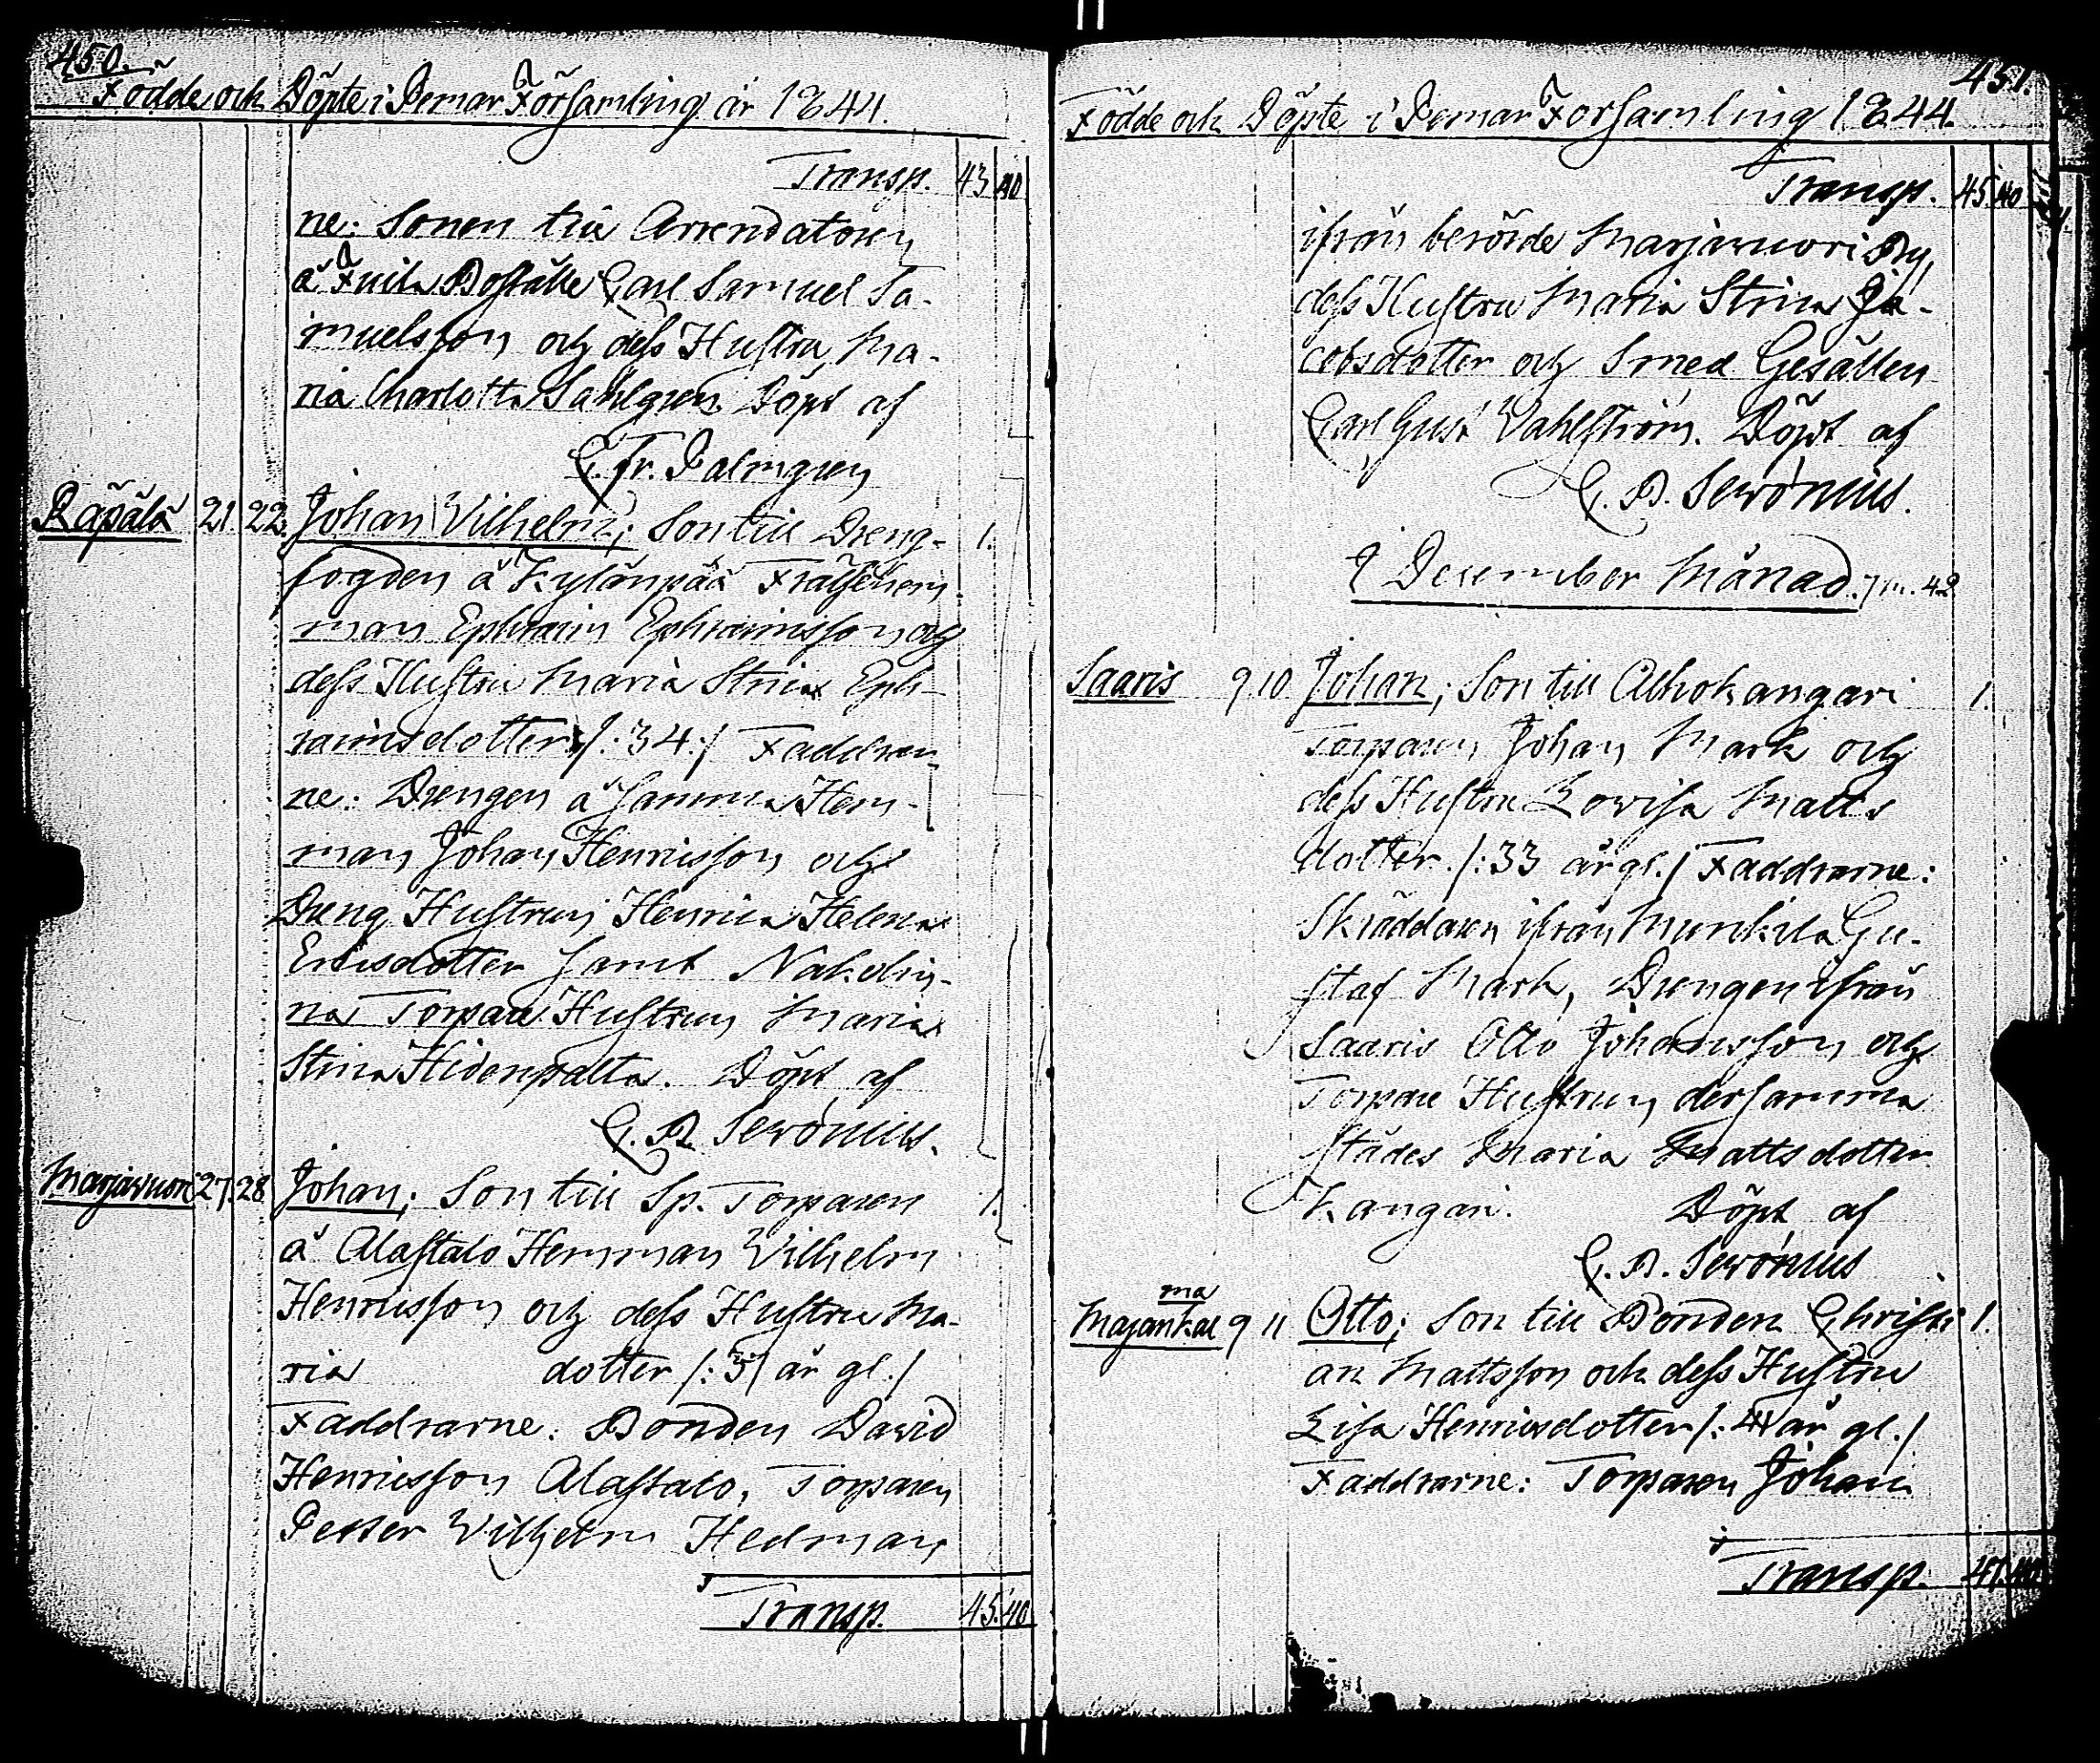 450.
Födde och Döpte i Pemar Församling år 1844.
Transp. 43 40
ne: Sonen till Arrendatorn
å Fuila Boställe Carl Samuel Sa-
muelsson och dess Hustru Ma-
ria Charlotta Sahlgren. Döpt af
C. Fr. Palmgren
Räpälä 21. 22. Johan Wilhelm; Son till Dreng- 1.
fogden å Kylänpää Frälsehem-
man Ephraim Ephraimsson och
dess Hustru Maria Stina Eph-
raimsdotter /: 34 :/ Faddrar-
ne: Drengen å samma Hem-
man Johan Henricsson och
Dreng Hustrun Henrica Helena
Ericsdotter samt Nakolin-
na Torpare Hustrun Maria
Stina Hidenpalta. Döpt af
C. B. Serónius.
Marjavuori 27. 28. Johan; Son till Sp. Torparen 1.
å Alastalo Hemman Wilhelm
Henricsson och dess Hustru Ma-
ria dotter /: 31 år gl. /
Faddrarne: Bonden David
Henricsson Alastalo, Torparen
Petter Wilhelm Hedman
Transp. 45. 40
451.
Födde och Döpte i Pemar Församling 1844.
Transp. 45. 40
ifrån berörde Marjavuori By,
dess Hustru Maria Stina Ja-
cobsdotter och Smed Gesällen
Carl Gust Wahlström. Döpt af
C. B. Serónius.
I December Månad.
Saaris 9 10 Johan; Son till Alhokangari 1.
Torparen Johan Mark och
dess Hustru Lovisa Matts
dotter. /: 33 år gl. / Faddrarne:
Skräddaren ifrån Munkila Gu-
staf Mark, Drengen ifrån
Saaris Otto Johansson och
Torpare Hustrun dersamma
städes Maria Mattsdotter
Kangari. Döpt af
C. B. Serónius
ma
Majankal 9 11 Otto; Son till Bonden Christi 1.
an Mattsson och dess Hustru
Lisa Henricsdotter /: 41 år gl. /
Faddrarne: Torparen Johan
Transp. 47. 40